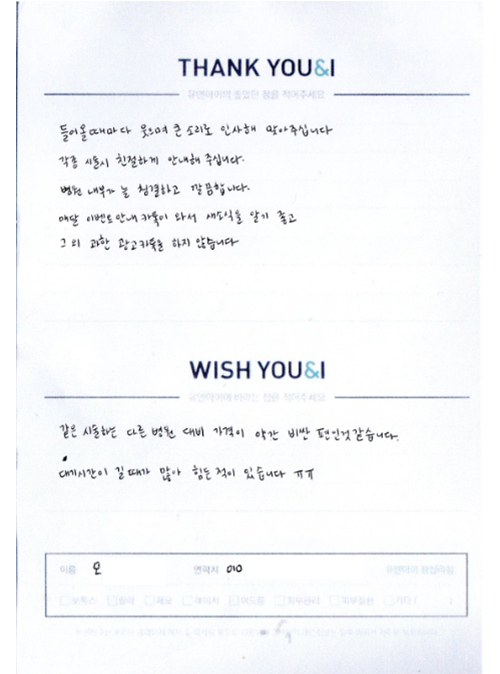 THANK YOU&I
유앤아이의 좋았던 점을 적어주세요
들어올때마다 웃으며 큰 소리로 인사해 맞아주십니다
각종 시술시 친절하게 안내해 주십니다.
병원 내부가 늘 청결하고 깔끔합니다.
매달 이벤트안내 카톡이 와서 새소식을 알기 좋고
그 외 과한 광고카톡을 하지 않습니다
WISH YOU&I
유앤아이에 바라는 점을 적어주세요
같은 시술하는 다른 병원 대비 가격이 약간 비싼 편인것같습니다.
대기시간이 길때가 많아 힘든적이 있습니다 ㅠㅠ
이름 오 연락처 010 유앤아이
보톡스 필러 제모 레이저 여드름 피부관리 기타 ( )